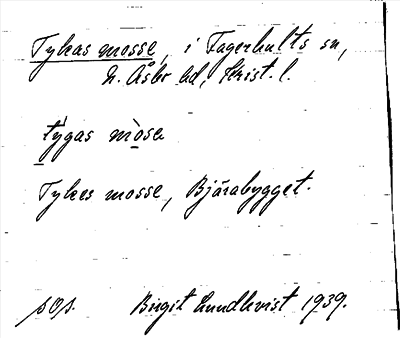 Tykas mosse, i Fagerhults sn,
N. Åsbo hd, Krist. l.
týgas mòse
Tykes mosse, Bjärabygget.
sOp. Birgit Lundkvist 1939.